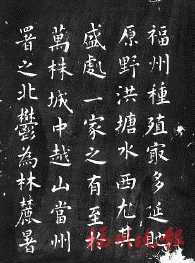 福州種殖冣多延貤
原野洪塘水西尤其
盛處一家之有至
萬株城中越山當州
署之北欝為林麓暑